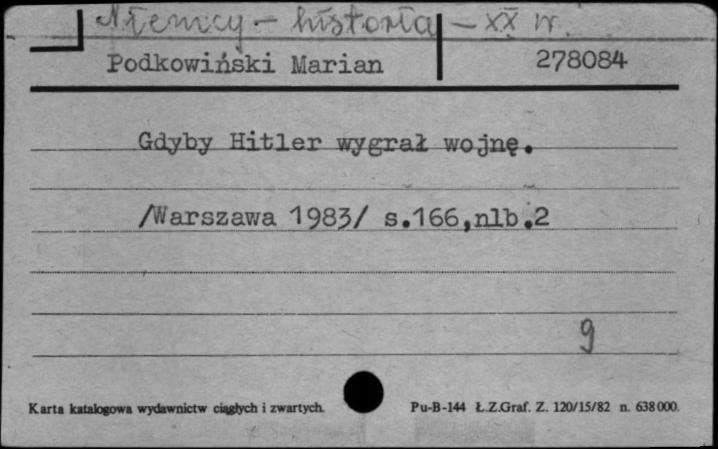 Niemcy - historia - XX w.
Podkowiński Marian 278084
Gdyby Hitler wygrał wojnę.
/Warszawa 1983/ s.166,nlb.2
9
Karta katalogowa wydawnictw ciągłych i zwartych. Pu-B-144 Ł.Z.Graf. Z. 120/15/82 n. 638000.